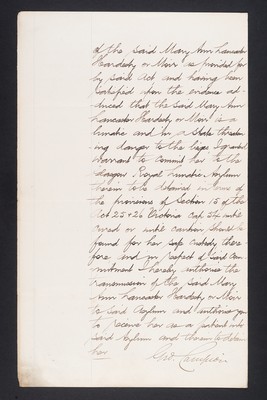 of the said Mary Ann Lancaster
Hardesty or Moir is provided for
by said Act and having been
satisfied upon the evidence ad-
duced that the said Mary Ann
Lancaster Hardesty or Moir is a
lunatic and in a state threaten-
ing danger to the lieges I granted
warrant to commit her to the
Glasgow Royal Lunatic Asylum
therein to be detained in terms of
the provisions of Section 15 of the
Act 25 & 26 Victoria cap 54 until
cured or until caution should be
found for her safe custody there
fore and in respect of said com-
mitment I hereby authorise the
transmission of the said Mary
Ann Lancaster Hardesty or Moir
to said Asylum and authorise you
to receive her as a patient into
said Asylum and therein to detain
her
Geo.